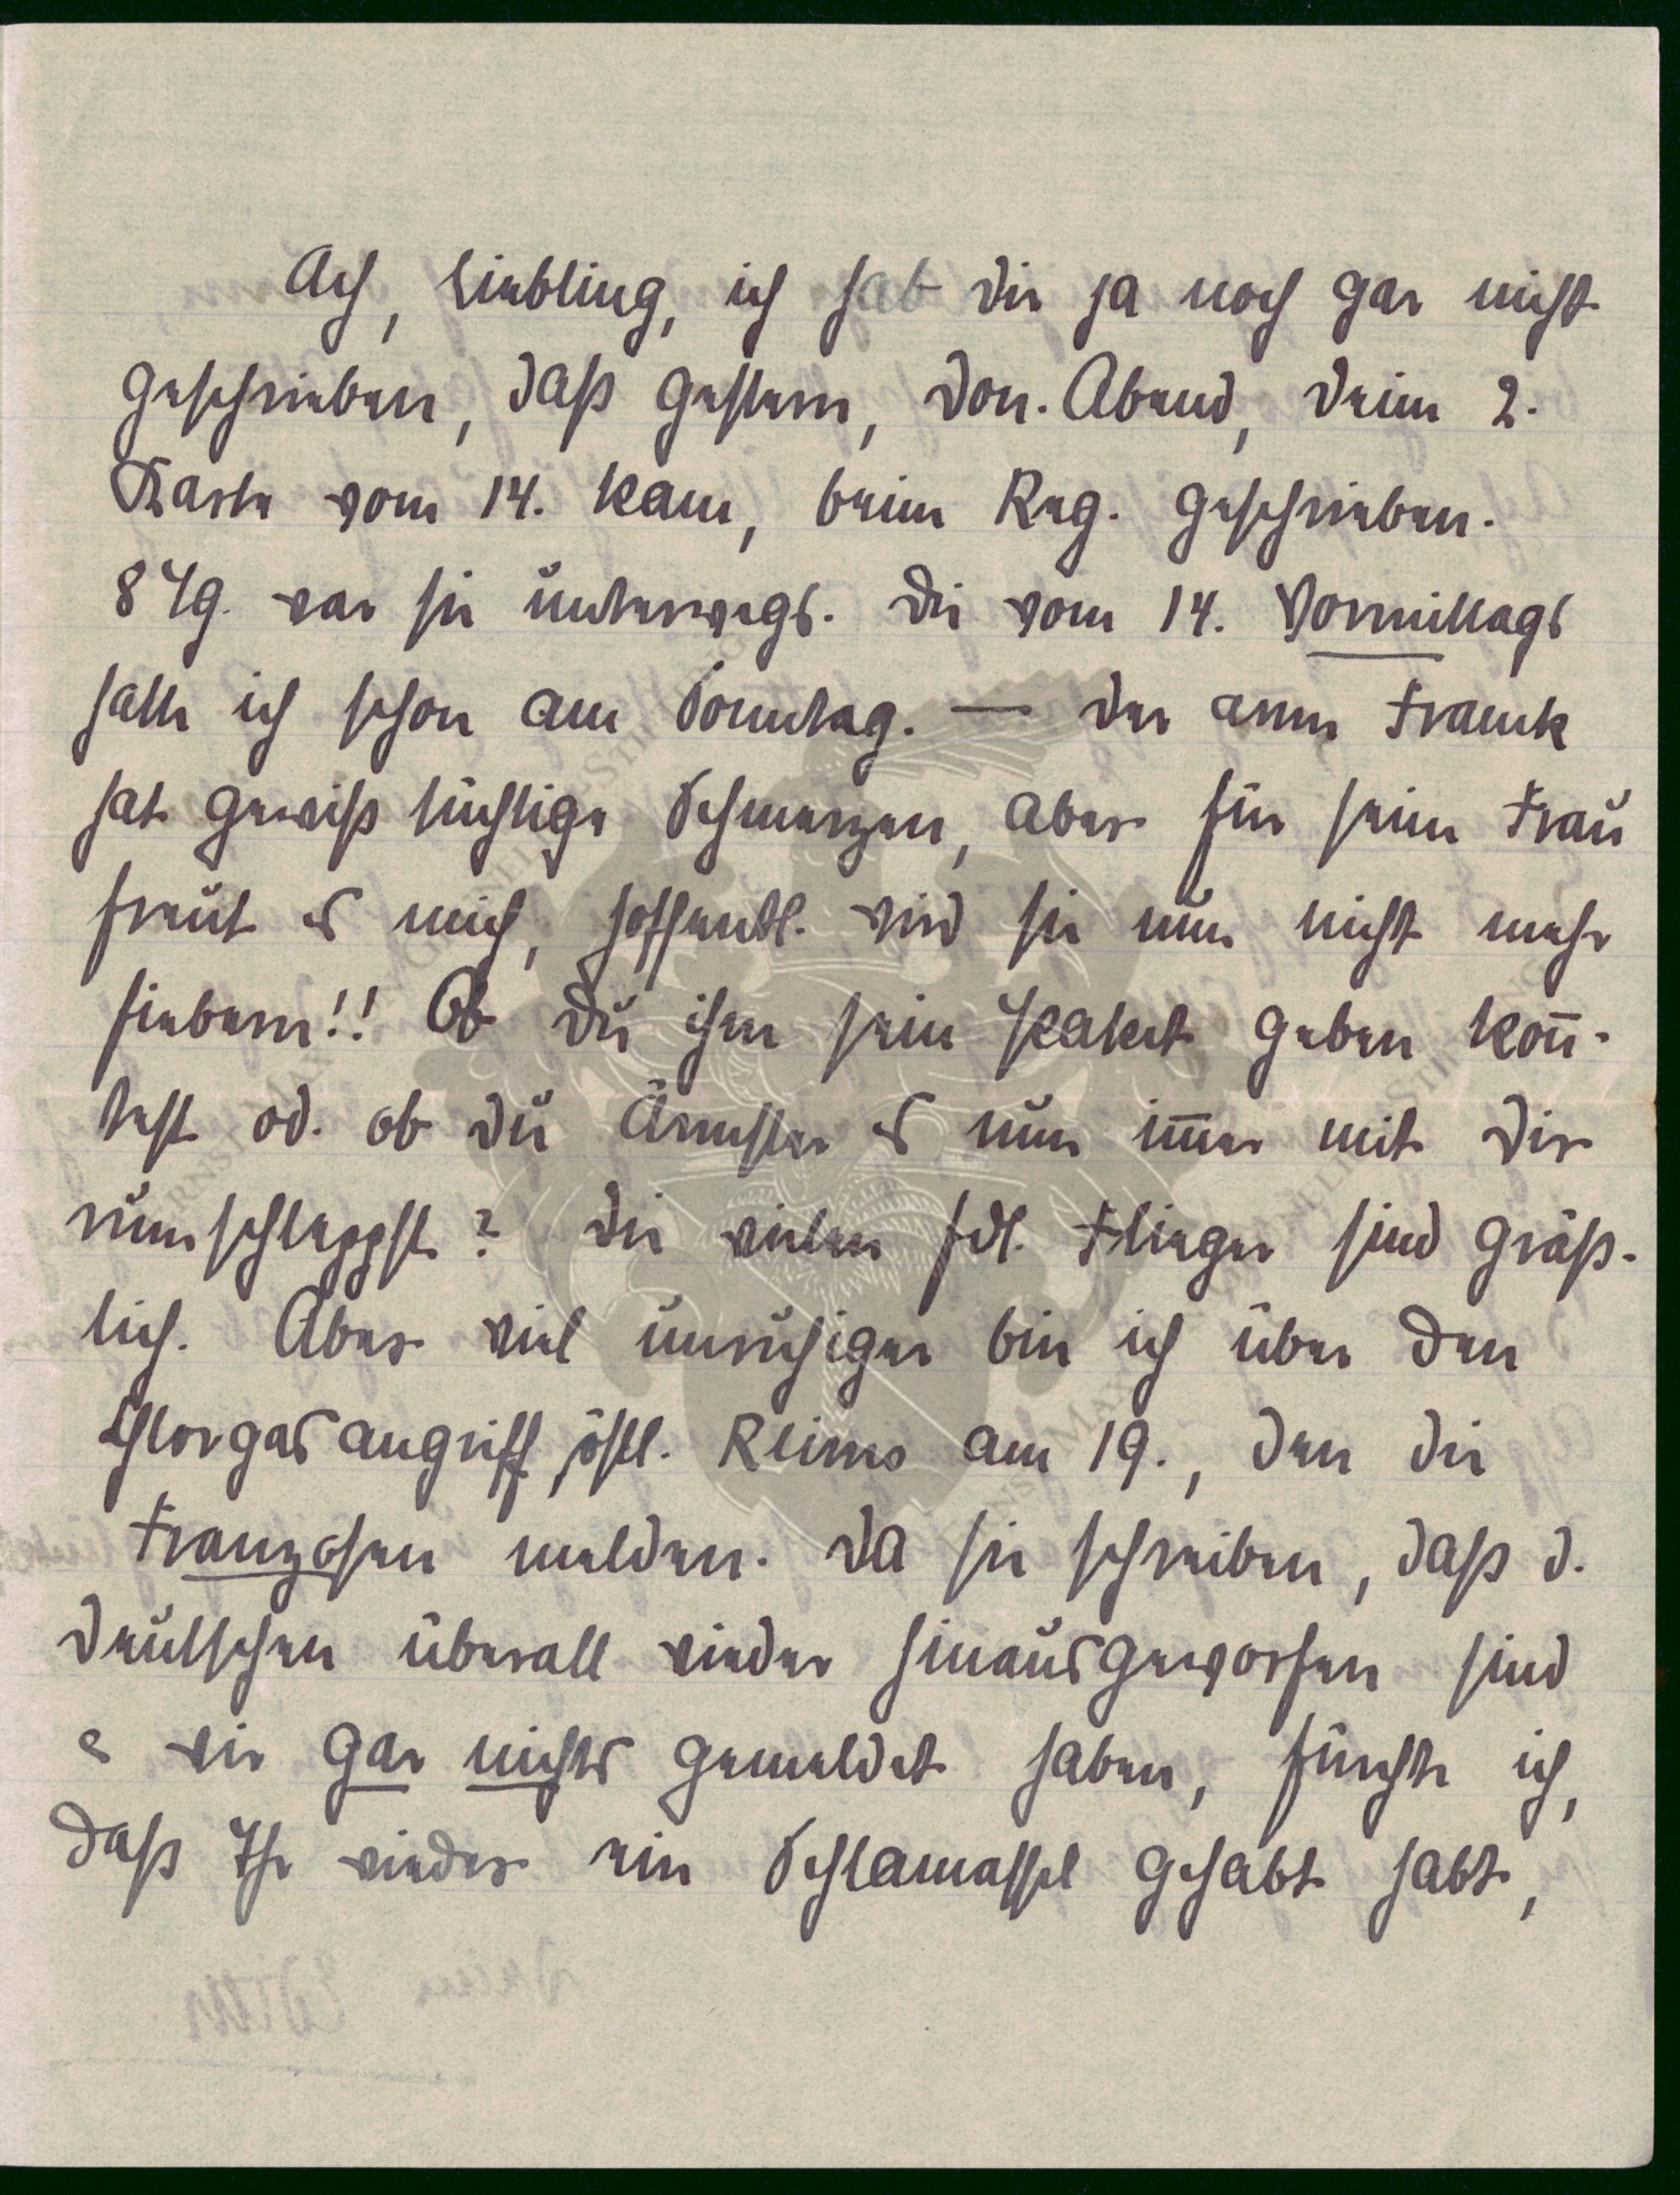 Ach, Liebling, ich hab Dir ja noch gar nicht
geschrieben, daß gestern, Don. Abend, Deine 2.
Karte vom 14. kam, beim Reg. geschrieben.
8 Tg. war sie unterwegs. Die vom 14. Vormittags
hatte ich schon am Sonntag. — Der arme Franck
hat gewiß tüchtige Schmerzen, aber für seine Frau
freut es mich, hoffentl. wird sie nun nicht mehr
fiebern!! Ob Du ihm sein Paket geben kon̅-
test od. ob Du Ärmster es nun im̅er mit Dir
rumschleppst? Die vielen fdl. Flieger sind gräß-
lich. Aber viel unruhiger bin ich über den
Chlorgasangriff östl. Reims am 19., den die
Franzosen melden. Da sie schreiben, daß d.
Deutschen überall wieder hinausgeworfen sind
& wir gar nichts gemeldet haben, fürchte ich,
daß Ihr wieder ein Schlamassel gehabt habt,